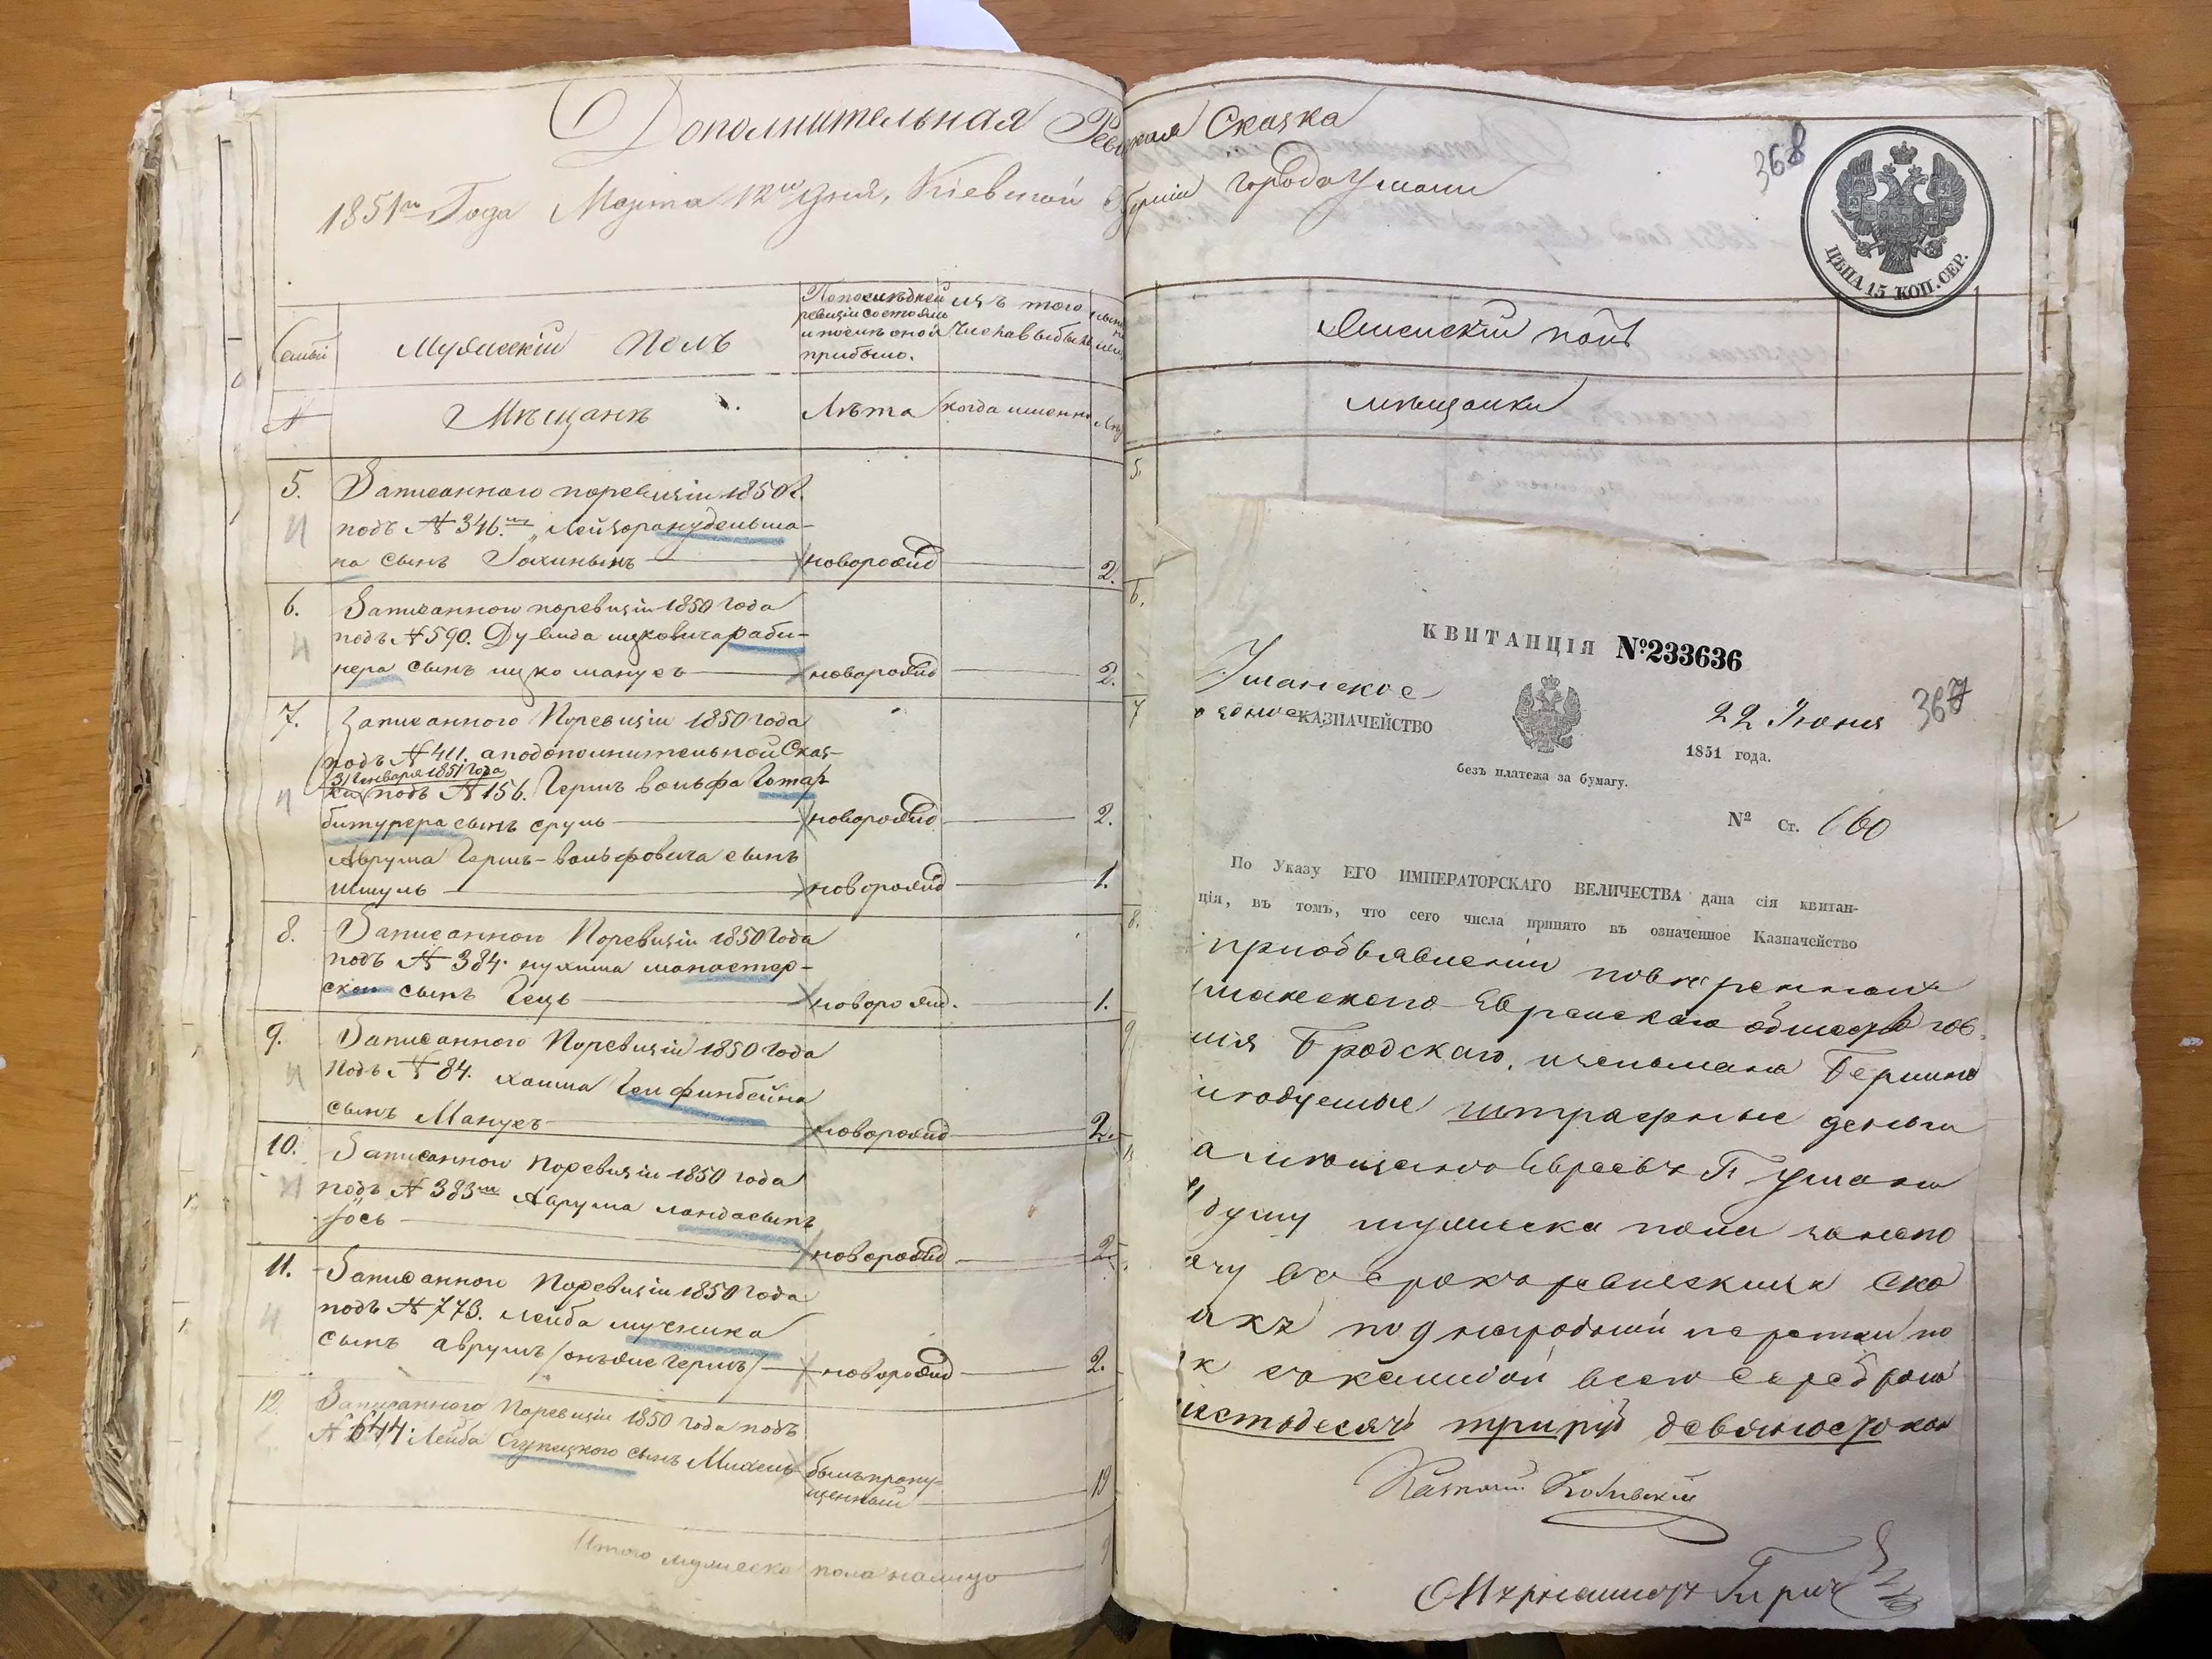 Дополнительная Ревизская Сказка
1851го Года Марта 12го дня, Кіевской Губерніи города Умани
368
ЦѢНА 15 КОП. СЕР.
Семьи
Мужескій Полъ
По последней ревизіи состояло и после оной прибыло.
изъ того числа выбыло
Женскій полъ
№
Мѣщанъ
Лѣта
когда именно
мѣщанки
5.
Записанного по ревизіи 1850 г.
подъ № 346.мъ Лейзора нудельма-
на сынъ
новорожд
2.
5.
6.
Записанного по ревизіи 1850 Года
подъ № 590. Дувида ицковича раби-
нера сынъ ицко манусъ
новорожд
2.
6.
7.
Записанного По ревизіи 1850 года
подъ № 411. а по дополнительной Сказ-
31 Января 1851 Года
ки подъ № 156. Гершъ вольфа Готар
битурера сынъ сруль
новорожд
2.
7
Аврума Гершъ-вольфовича сынъ
Шмуль
новорожд
1.
8.
Записанного По ревизіи 1850 Года
подъ № 384. нухима монастер-
ског сынъ Гецъ
новорожд.
1.
8.
9.
Записанного По ревизіи 1850 Года
подъ № 84. хаима Гелфинбейна
сынъ Манусъ
новорожд
2.
9
10.
Записанного По ревизіи 1850 года
подъ № 383мъ Аврума ландасынъ
Іось
новорожд
2.
11.
Записанного По ревизіи 1850 Года
подъ № 773. лейба мучника
сынъ аврумъ /онъ же Гершъ/
новорожд
2.
12.
Записанного По ревизіи 1850 года подъ
№ 644. Лейба Ступецкого сынъ Михель
былъ пропу-
щенный
19
Итого мужеска пола налицо
9
КВИТАНЦІЯ №233636
Уманское
КАЗНАЧЕЙСТВО
22 Іюня
1851 года.
367
безъ платежа за бумагу.
№ Ст. 160
По Указу ЕГО ИМПЕРАТОРСКАГО ВЕЛИЧЕСТВА дана сія квитан-
ція, въ томъ, что сего числа принято въ означенное Казначейство
при объявленіи повѣренныхъ
уманского Еврейскаго общества
Бродскаго, изельмана Бершина
слѣдуемые штрафные деньги
а мещанъ Евреевъ Г Умани
душу мужеска пола
въ срокъ ревизскихъ ска
акъ по
к съ каждой всего серебромъ
шестьдесятъ три руб девяносто коп
Казначей